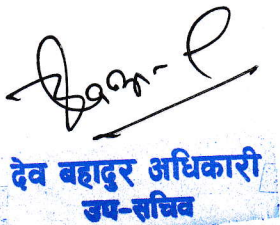 देव बहादुर अधिकारी
उप-सचिव